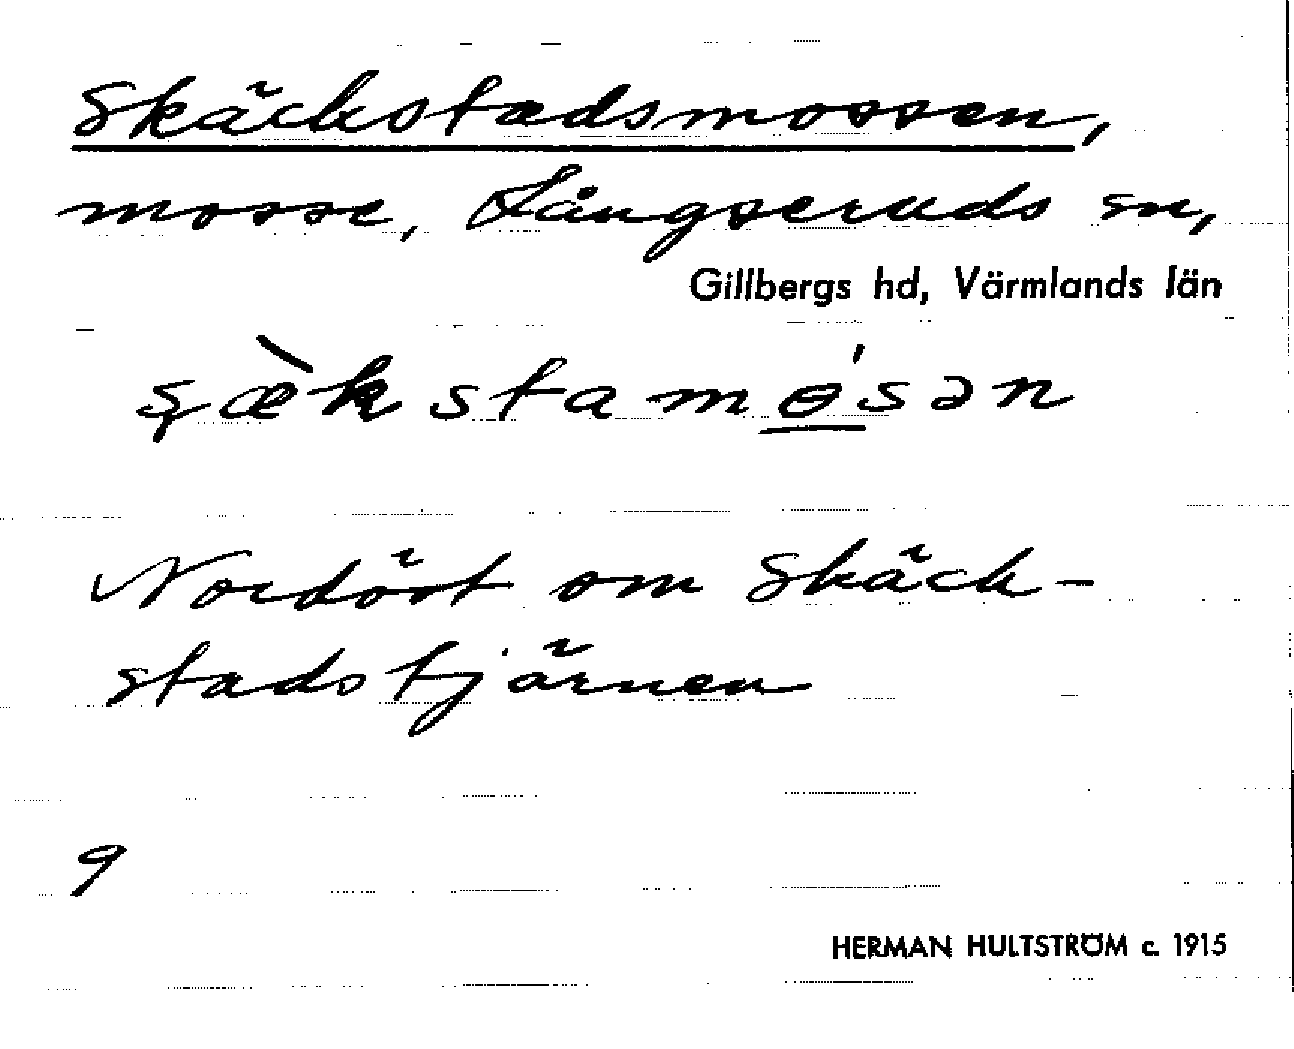 Skäckstadsmossen,
mosse, Långseruds sn,
Gillbergs hd, Värmlands län
ʂæ̀kstamɵ́sən
Nordöst om Skäck-
stadstjärnen
9
HERMAN HULTSTRÖM c. 1915